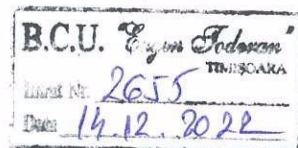 B.C.U. "Eugen Todoran"
TIMIŞOARA
Intrat Nr. 2655
Data 14.12.2022